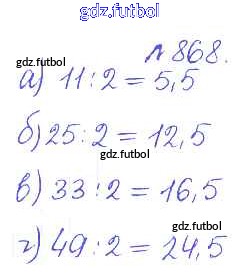 gdz.futbol
№ 868.
gdz.futbol
gdz.futbol
а) 11 : 2 = 5,5
gdz.futbol
б) 25 : 2 = 12,5
gdz.futbol
в) 33 : 2 = 16,5
gdz.futbol
г) 49 : 2 = 24,5